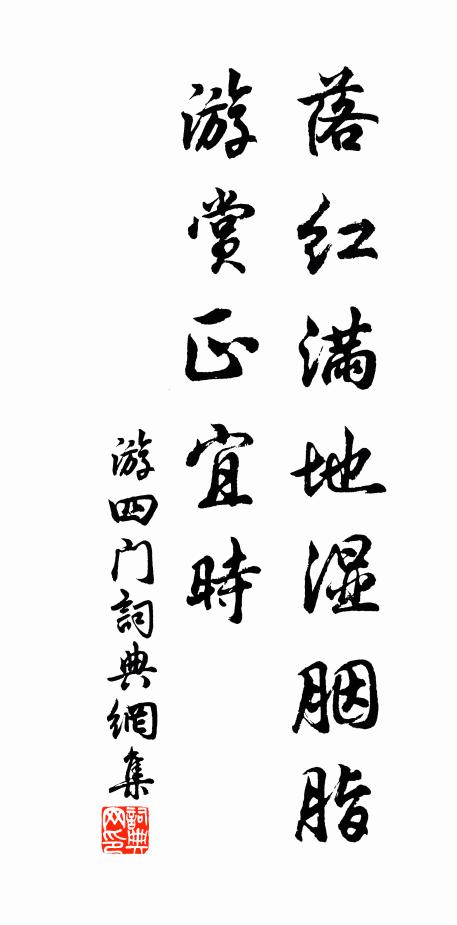 落红满地湿胭脂
游赏正宜時
游四门詞典網集
詞典网印